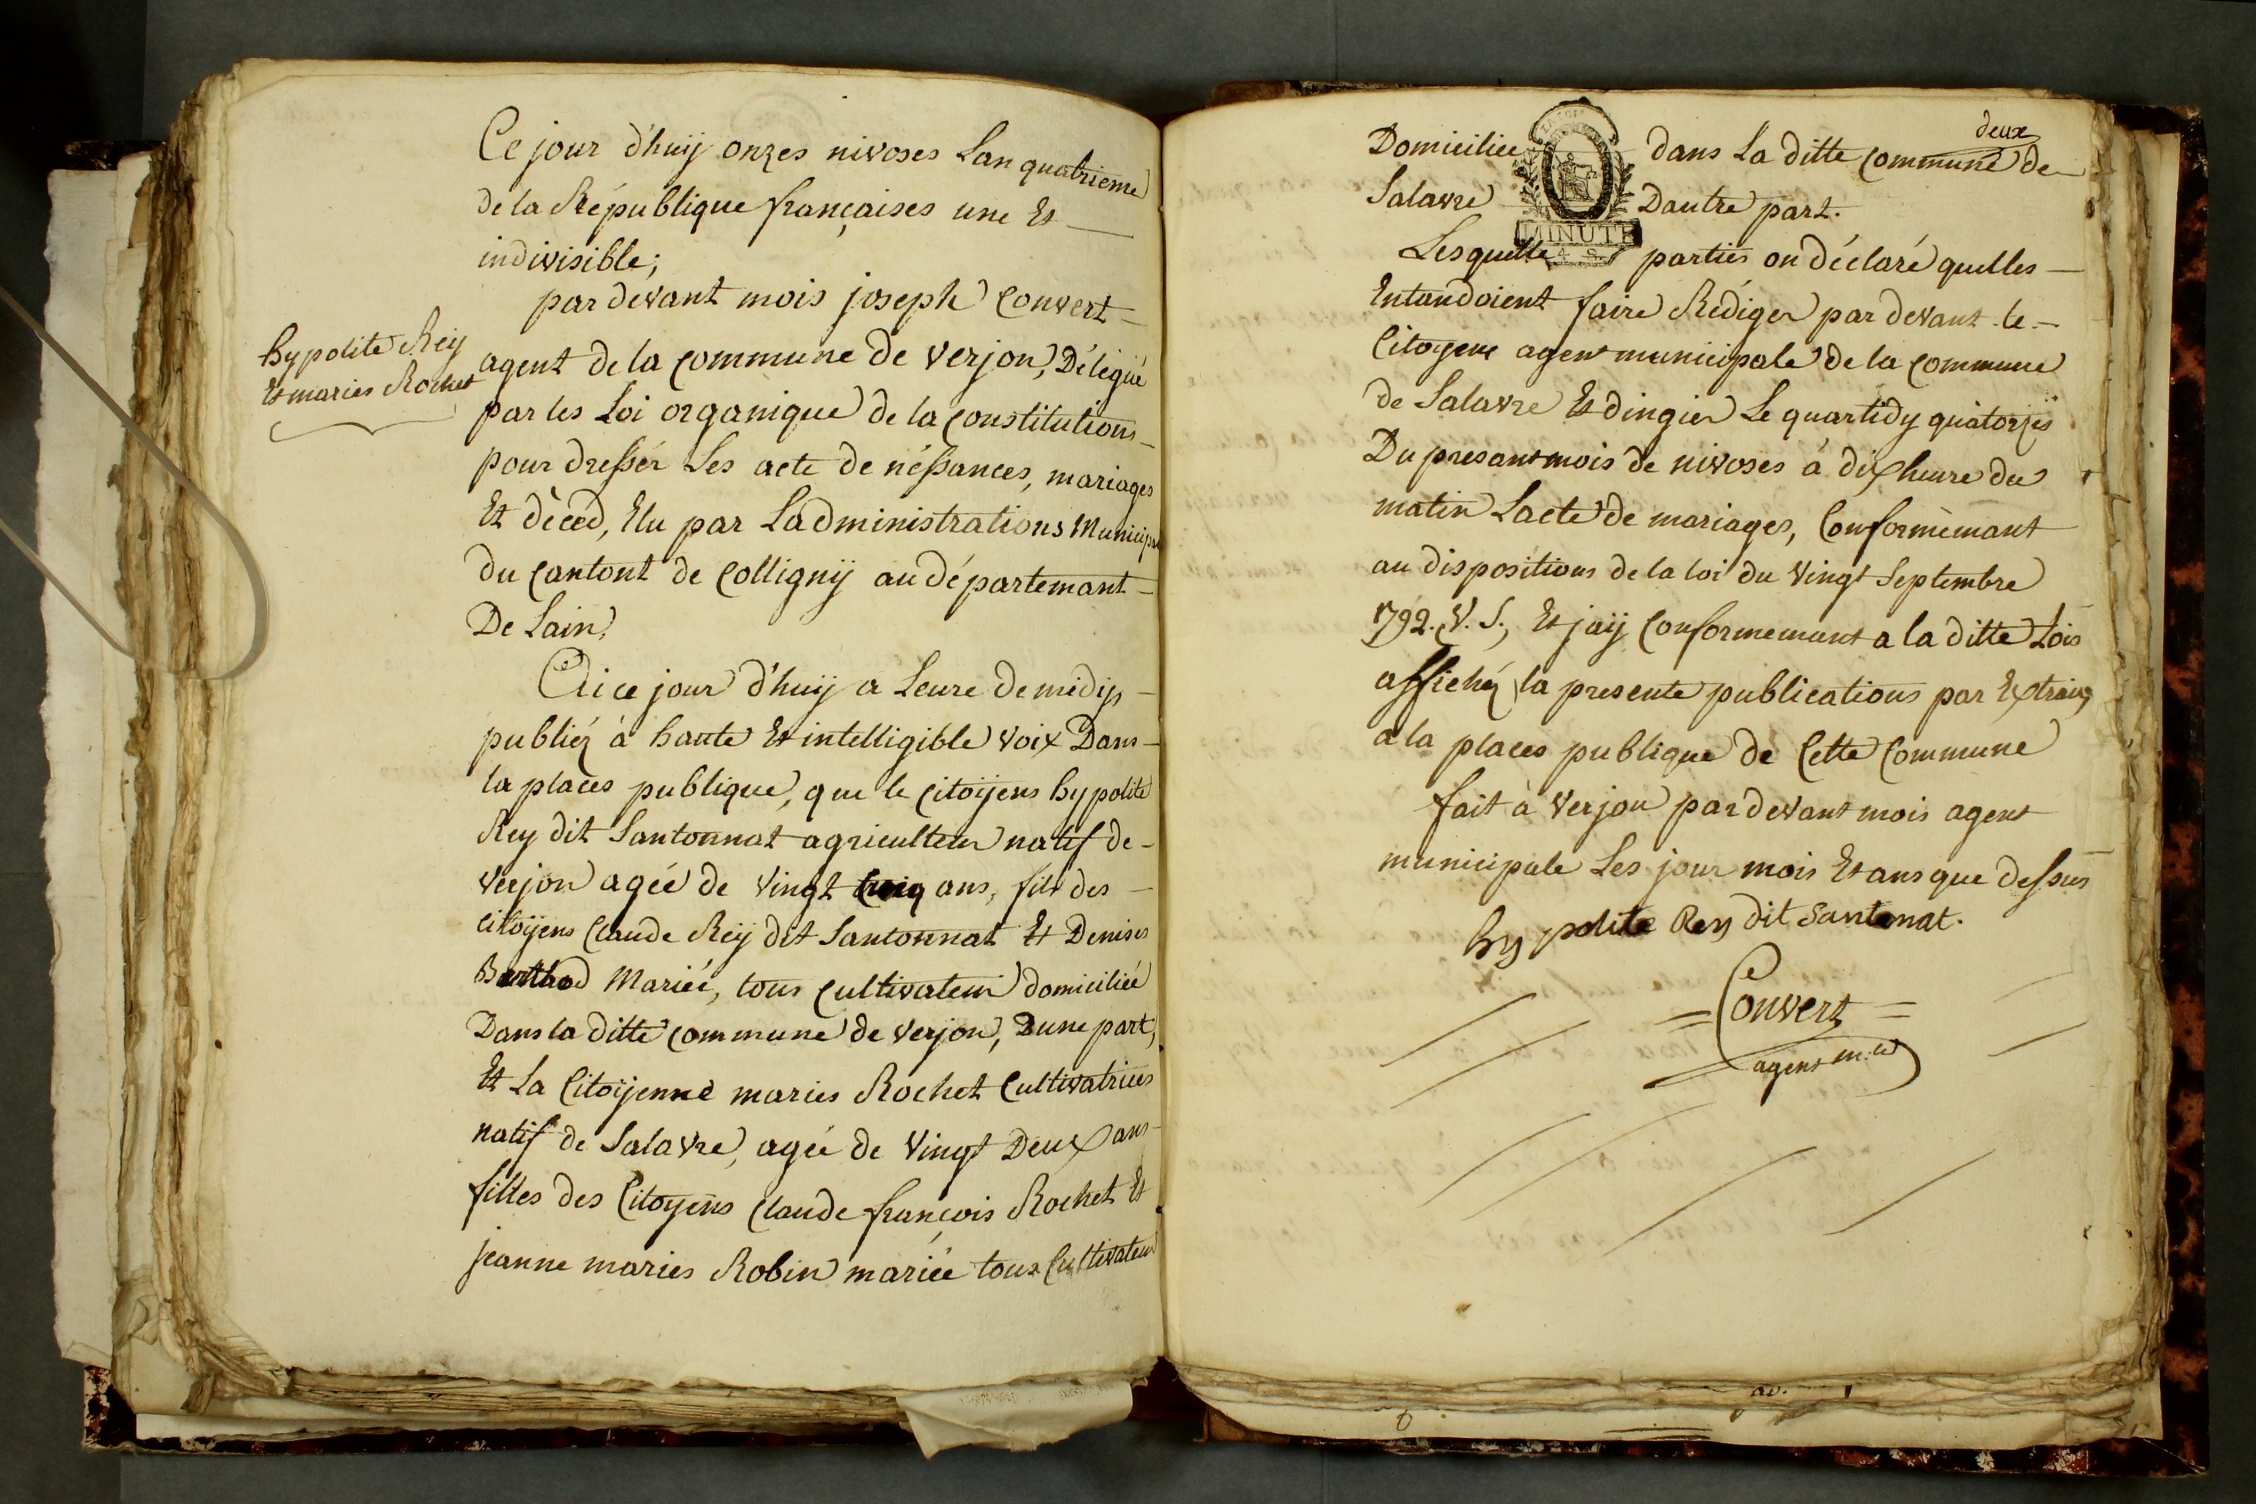 Ce jour d'huij onzes nivoses Lan quatrieme
de la République françaises une Et
indivisible;
par devant mois joseph Convert
hypolite Reij
Et maries Rochet
agent de la commune de verjon, Délégué
par les Loi organique de la constitutions
pour dresser Les acte de néssances, mariages
Et dèced, Elu par Ladministrations Municipa
du cantont de Collignij au département
De Lain,
ce jour d'huij a Leure de midij
publiéz à haute Et intelligible voix Dans
la places publique, que le citoijens hypolite
Rey dit Santonnat agriculteur natif de
verjon agée de vingt cinq ans, fils des
citoijens Claude Reij dit Santonnat Et Denises
Barthod Mariée, tous cultivateur domiciliée
Dans la ditte commune de verjon, Dune part,
Et La Citoijenne maries Rochet Cultivatrices
natif de Salavre, agée de vingt Deux ans
filles des Citoyens Claude françois Rochet Et
jeanne maries Robin mariée tous Cultivateur
deux
Domiciliée dans La ditte commune de
Salavre Dautre part.
MINUTE
Lesquelle parties on déclaré quelles
Entandoient faire Rédiger par devant le
Citoyene agent municipale de la commune
de Salavre Et dingier Le quartidy quatorzes
Du presant mois de nivoses à dix heure du
matin Lacte de mariages, Conformémant
au dispositions de la loi du vingt Septembre
1792. V. S., Et jaij conformemant a la ditte Lois
affichéz la presente publications par Extrai
a la places publique de Cette Commune
fait à verjon par devant mois agent
municipale Les jour mois Et ans que dessus
hypolite Rey dit Santonat.
Convert
agent m.al